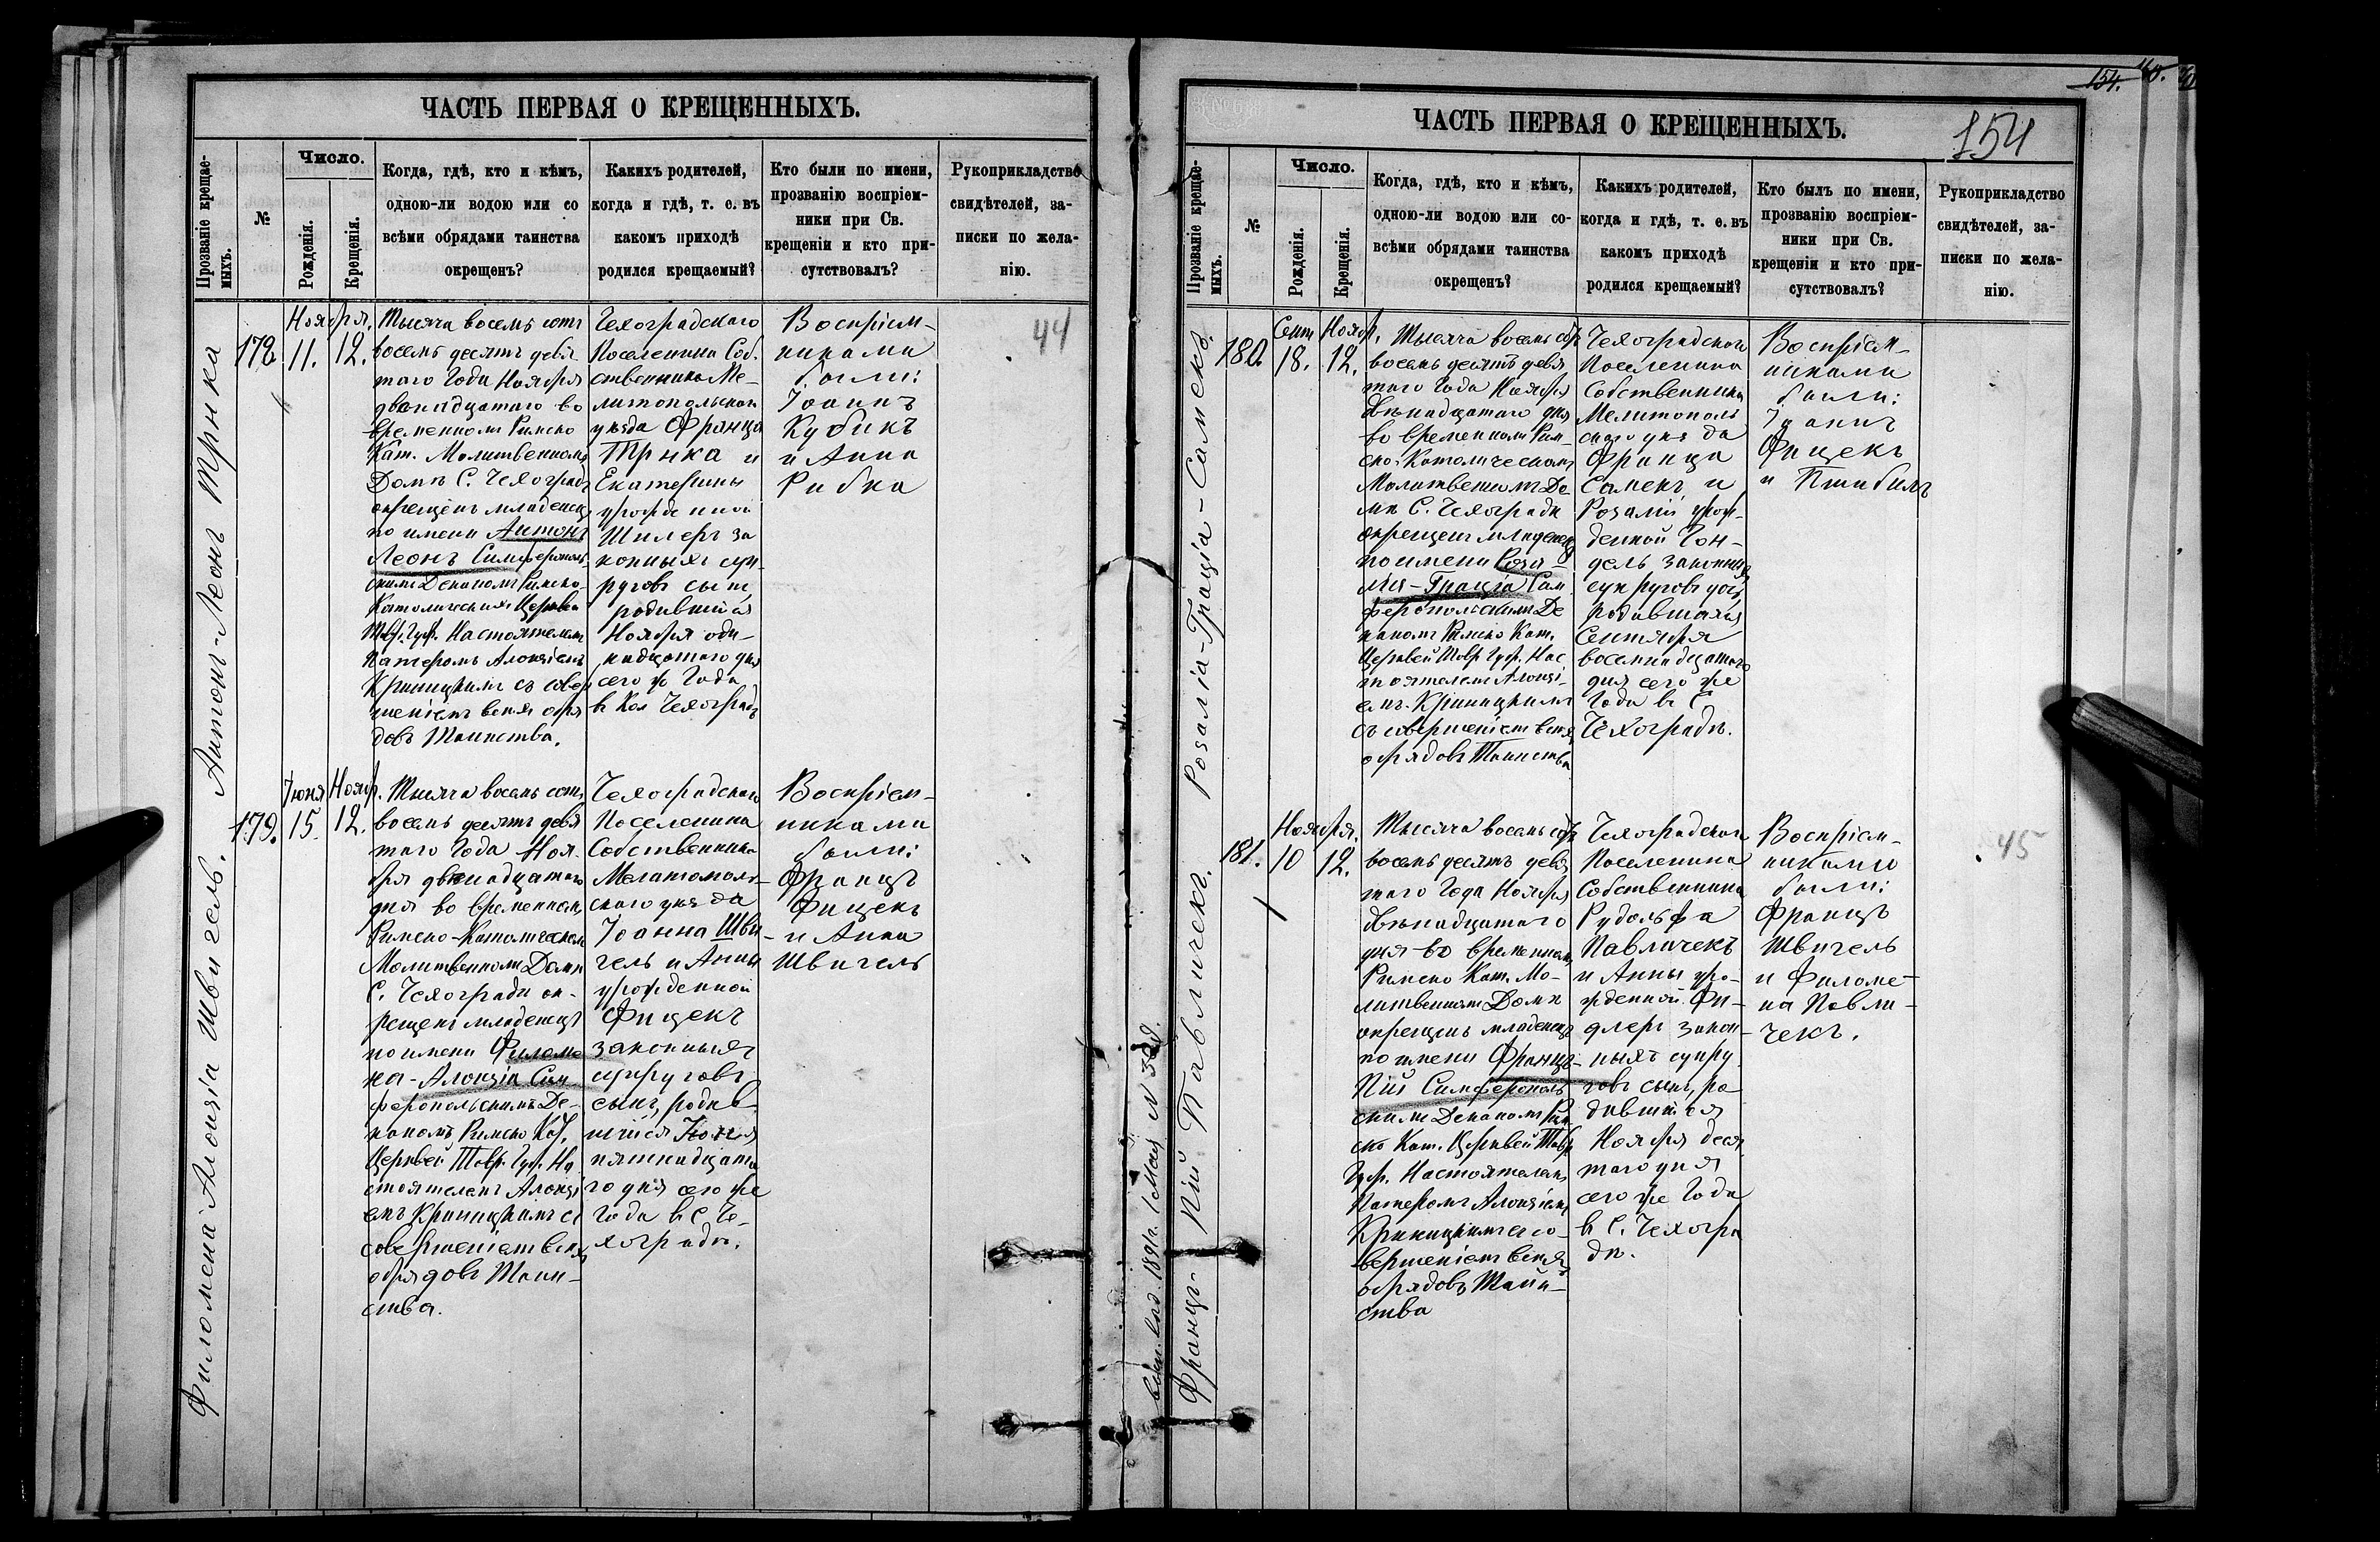 ЧАСТЬ ПЕРВАЯ О КРЕЩЕННЫХЪ.
Прозваніе крещае-
мыхъ.
№
Число.
Рожденія.
Крещенія.
Когда, гдѣ, кто и кѣмъ,
одною-ли водою или со
всѣми обрядами таинства
окрещенъ?
Какихъ родителей,
когда и гдѣ, т. е. въ
какомъ приходѣ
родился крещаемый?
Кто были по имени,
прозванію воспріем-
ники при Св.
крещеніи и кто при-
сутствовалъ?
Рукоприкладство
свидѣтелей, за-
писки по жела-
нію.
Антонъ-Леонъ Трнка
178
Ноября.
11. 12.
Тысяча восемь сотъ
восемь десятъ девя
таго Года Ноября
двѣнадцатаго во
временномъ Римско
Кат. Молитвенномъ
Домѣ С. Чехоградъ
окрещенъ младенецъ
по имени Антонъ
Леонъ Симферополь
скимъ Деканомъ Римско-
Католическихъ Церквей
Тавр. Губ. Настоятелемъ
Патеромъ Алоизіемъ
Криницкимъ съ совер
шеніемъ всѣхъ обря
довъ Таинства.
Чехоградскаго
Поселенина Соб.
ственника Ме-
литопольскаго
уѣзда Франца
Трнка и
Екатерины
урожденной
Шилеръ за
конныхъ суп-
руговъ сынъ,
родившійся
Ноября оди-
надцатаго дня
сего ж Года
в Кол Чехоградъ
Воспріем-
никами
были:
Іоаннъ
Кубикъ
и Анна
Рибка
44
Филомена Алоизія Швигель.
179.
Іюня Нояб.
15. 12.
Тысяча восемь сотъ
восемь десятъ девя
таго Года Ноя-
бря двѣнадцатаго
дня во временномъ
Римско-Католическомъ
Молитвенномъ Домѣ
С. Чехоградѣ ок-
рещенъ младенецъ
по имени Филоме
на-Алоизія Сим
феропольскимъ Де-
каномъ Римско Кат.
Церквей Тавр. Губ. На
стоятелемъ Алоизі
емъ Криницкимъ съ
совершеніемъ всѣхъ
обрядовъ Таин-
ства.
Чехоградскаго
Поселенина
Собственника
Мелитополь-
скаго уѣзда
Іоанна Шви-
гель и Анны
урожденной
Фицекъ
законныхъ
супруговъ
сынъ, родив
шійся Іюня
пятнадцата
го дня сего же
Года въ С Че-
хоградѣ.
Воспріем-
никами
были:
Францъ
Фицекъ
и Анна
Швигель
всып. выд. 1891г. 1 Мая N 388.
154. 40.
154
ЧАСТЬ ПЕРВАЯ О КРЕЩЕННЫХЪ.
Прозваніе крещае-
мыхъ.
№
Число.
Рожденія.
Крещенія.
Когда, гдѣ, кто и кѣмъ,
одною-ли водою или со-
всѣми обрядами таинства
окрещенъ?
Какихъ родителей,
когда и гдѣ, т. е. въ
какомъ приходѣ
родился крещаемый?
Кто былъ по имени,
прозванію воспріем-
ники при Св.
крещеніи и кто при-
сутствовалъ?
Рукоприкладство
свидѣтелей, за-
писки по жела-
нію.
Розалія-Грація-Самекъ.
180.
Сент Нояб.
18. 12.
Тысяча восемь сотъ
восемь десятъ девя
таго Года Ноября
двѣнадцатаго дня
во временномъ Рим-
ско-Католическомъ
Молитвенномъ До
мѣ С. Чехоградѣ
окрещенъ младенецъ
по имени Роза-
лія-Грація Сим
феропольскимъ Де
каномъ Римско Кат.
Церквей Тавр Губ. Нас
тоятелемъ Алоизі-
емъ Криницкимъ
съ совершеніемъ всѣхъ
обрядовъ Таинства
Чехоградскаго
Поселенина
Собственника
Мелитополь
скаго уѣзда
Франца
Самекъ и
Розаліи урож-
денной Гон-
дель законныхъ
супруговъ дочь
родившаяся
Сентября
восемнадцатаго
дня сего же
Года въ С
Чехоградѣ.
Воспріем-
никами
были:
Іоаннъ
Фицекъ
и Пшибилъ
Францъ-Пій Павличекъ.
181.
Ноября.
10 12.
Тысяча восемь сотъ
восемь десятъ девя
таго Года Ноября
двѣнадцатаго
дня во временномъ
Римско Кат. Мо-
литвенномъ Домѣ
окрещенъ младенецъ
по имени Францъ-
Пій Симферополь
скимъ Деканомъ Рим
ско Кат. Церквей Тавр
Губ. Настоятелемъ
Патеромъ Алоизіемъ
Криницкимъ съ со-
вершеніемъ всѣхъ
обрядовъ Таин-
ства
Чехоградскаго
Поселенина
Собственника
Рудольфа
Павличекъ
и Анны уро-
жденной Фи-
длеръ закон-
ныхъ супру
говъ сынъ, ро-
дившійся
Ноября деся
таго дня
сего же Года
въ С. Чехогра
дѣ.
Воспріем-
никами
были:
Францъ
Швигель
и Филоме-
на Павли-
чекъ.
45